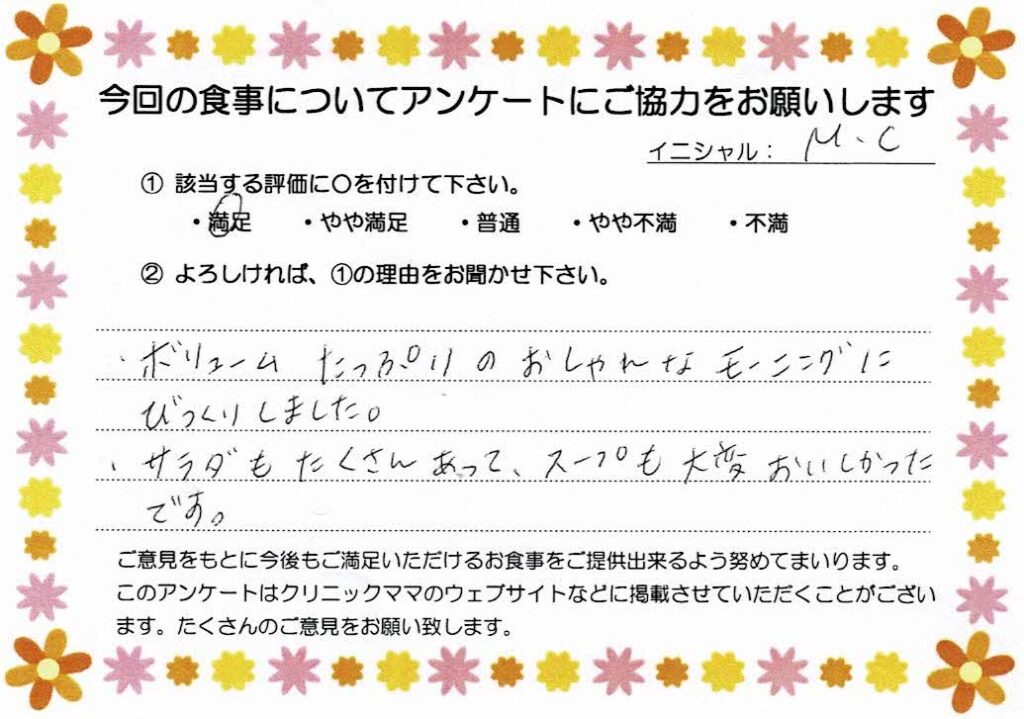 今回の食事についてアンケートにご協力をお願いします
イニシャル： M.C
① 該当する評価に〇を付けて下さい。
・満足 ・やや満足 ・普通 ・やや不満 ・不満
② よろしければ、①の理由をお聞かせ下さい。
・ボリュームたっぷりのおしゃれなモーニングに
びっくりしました。
・サラダもたくさんあって、スープも大変おいしかった
です。
ご意見をもとに今後もご満足いただけるお食事をご提供出来るよう努めてまいります。
このアンケートはクリニックママのウェブサイトなどに掲載させていただくことがござい
ます。たくさんのご意見をお願い致します。